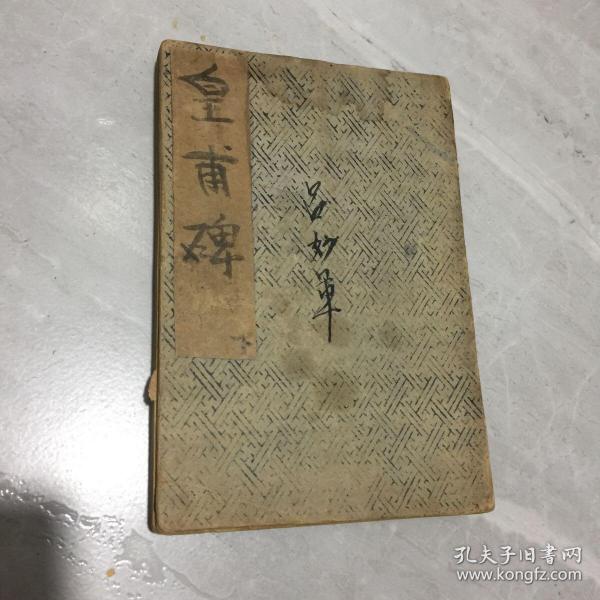 皇甫碑
下
吕妙軍
孔夫子旧书网
www.kongfz.com